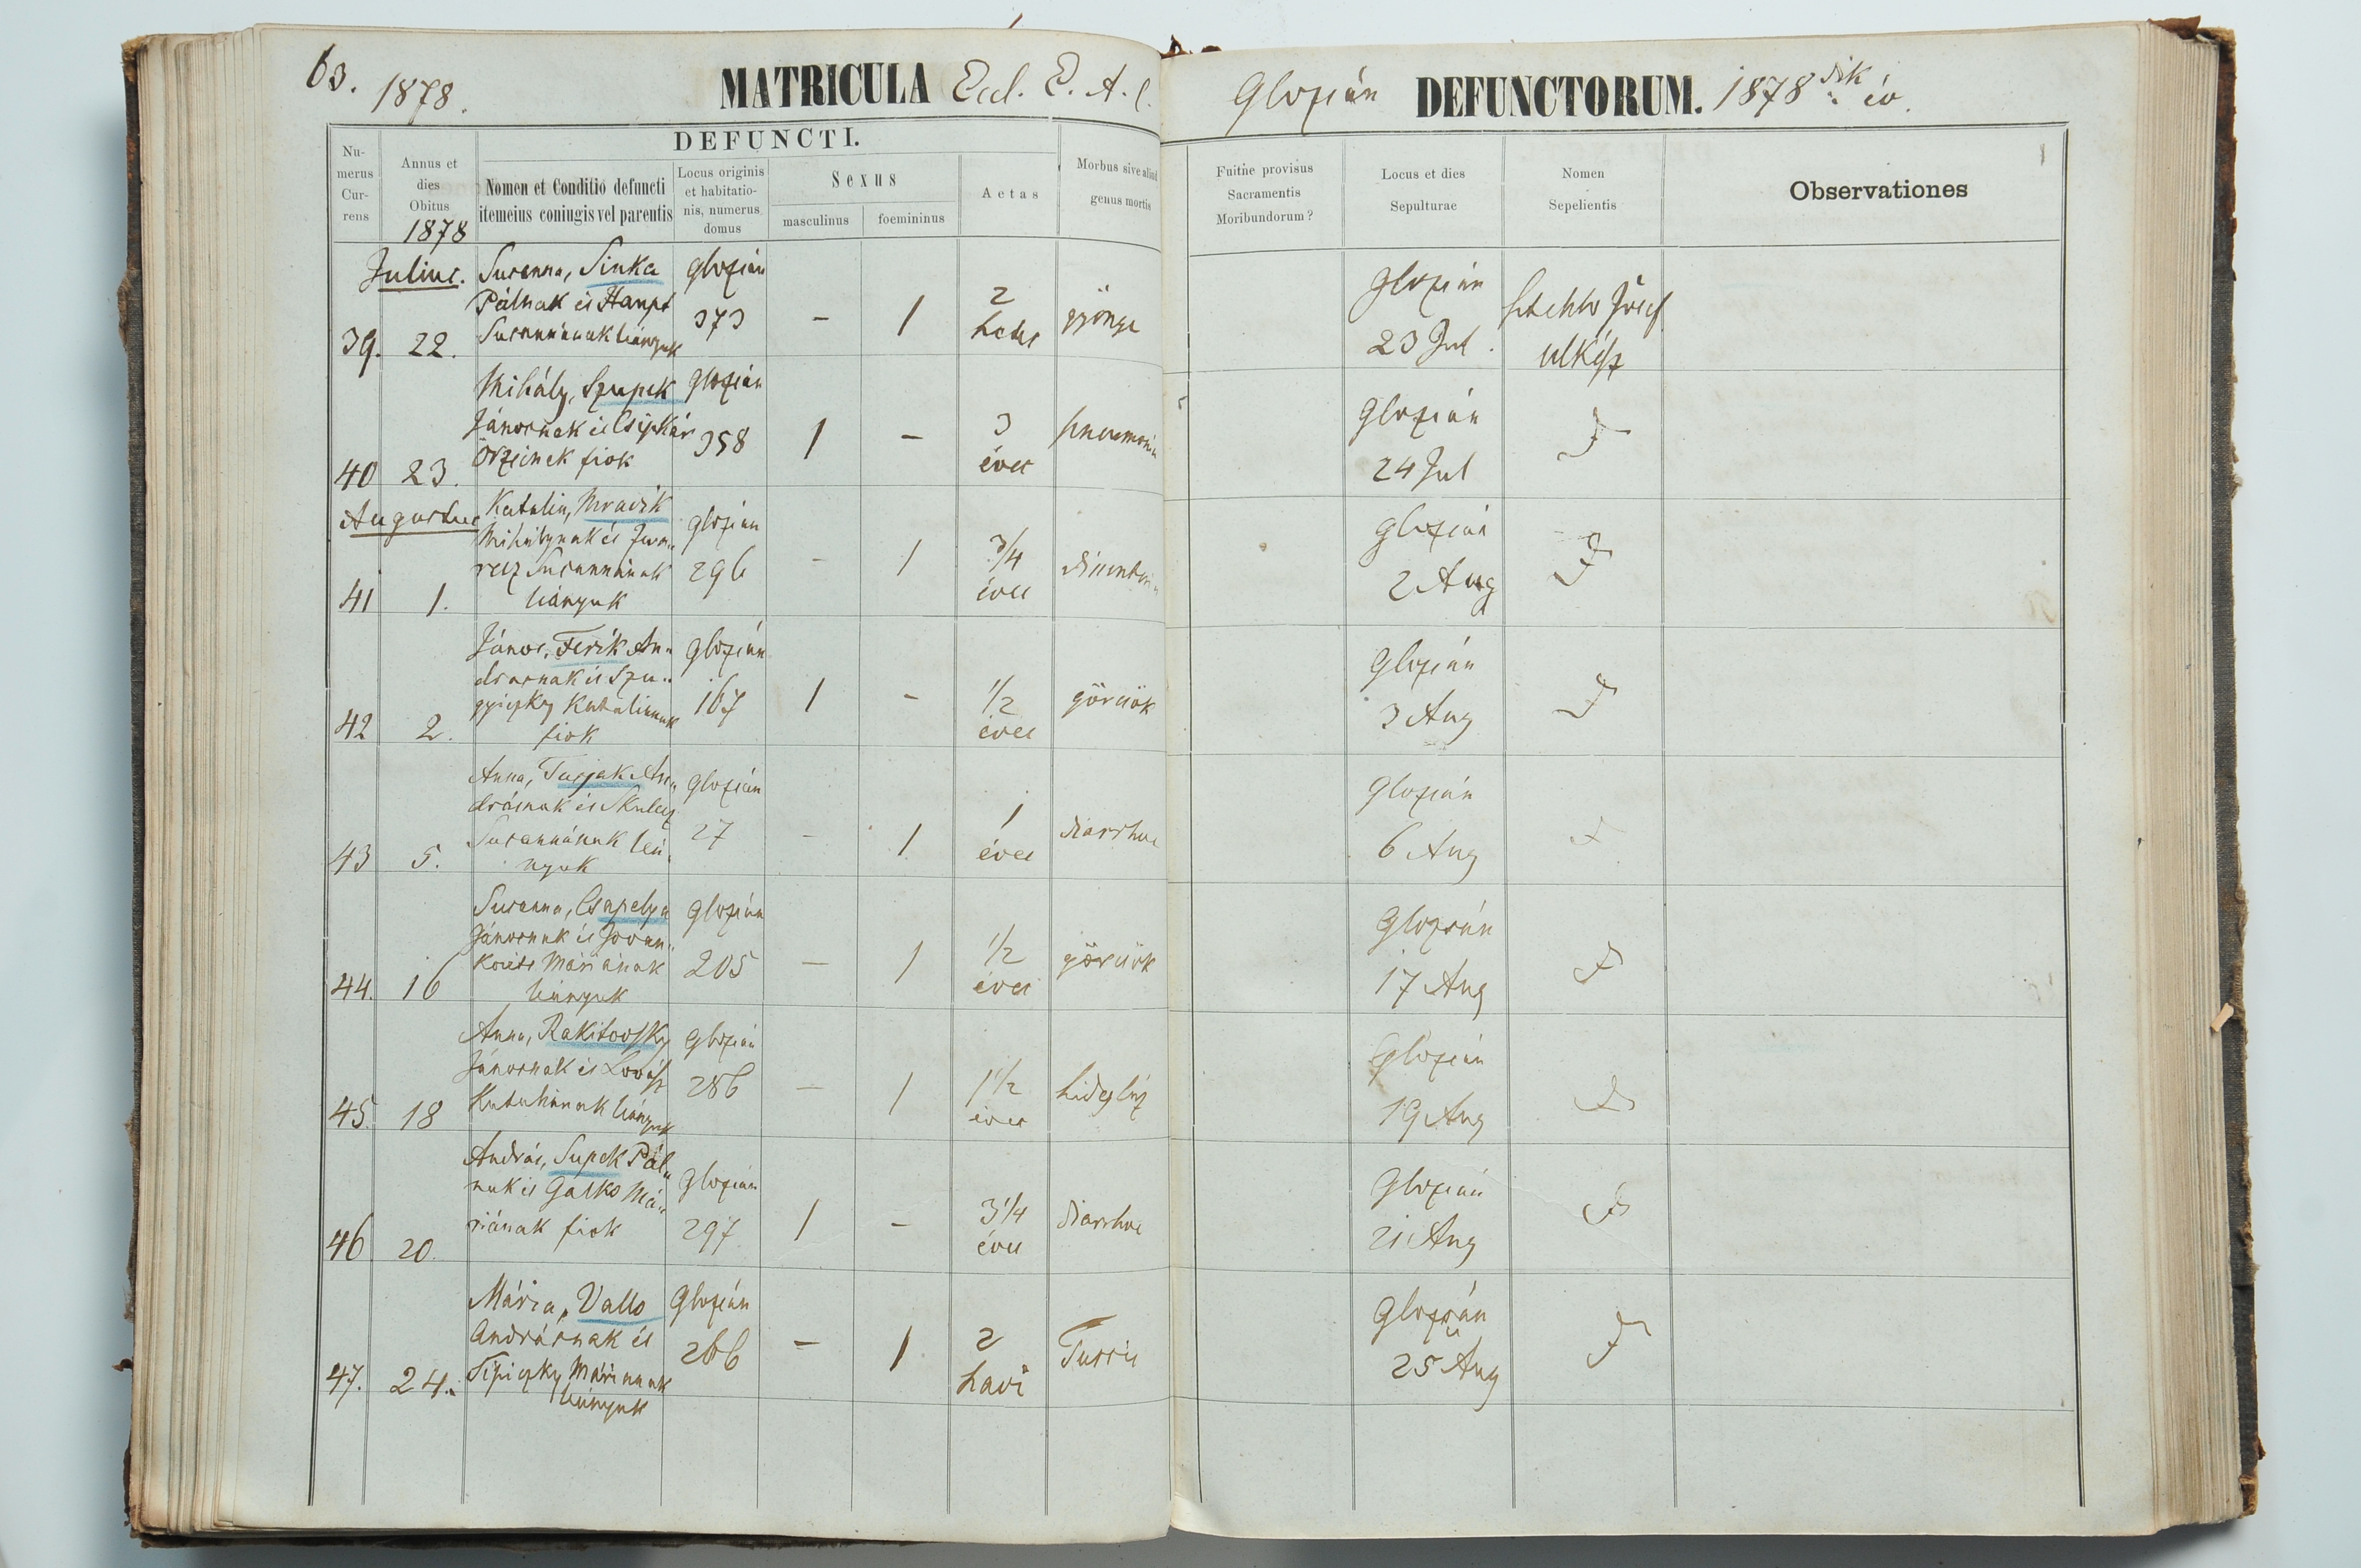 63. 1878.
MATRICULA Eccl. E. A. C. Glozsán DEFUNCTORUM. 1878 dik év.
DEFUNCTI.
Numerus Currens
Annus et dies Obitus
1878
Nomen et Conditio defuncti
itemeius coniugis vel parentis
Locus originis
et habitatio-
nis, numerus
domus
Sexus
masculinus
foemininus
Aetas
Morbus sive aliud
genus mortis
Fuitne provisus
Sacramentis
Moribundorum?
Locus et dies
Sepulturae
Nomen
Sepelientis
Observationes
Julius.
39. 22.
Susanna, Sinka
Pálnak és Haupt
Susannának leányuk
Glozsán
373
-
1
2
hetes
gyönge
Glozsán
23 Jul.
József
lelkész
40 23.
Mihály, Szupek
Jánosnak és Csipkár
Örzsinek fiok
Glozsán
358
1
-
3
éves
pneumonia
Glozsán
24 Jul
Augustus
41 1.
Katalin, Mravik
Mihálynak és
Susannának
leányuk
Glozsán
296
-
1
3/4
éves
Glozsán
2 Aug
42 2.
János, Ferik An-
drasnak és Szu-
Katalinnak
fiok
Glozsán
167
1
-
1/2
éves
görcsök
Glozsán
3 Aug
43 5.
Anna, Turjak An-
drásnak és
Susannának leá-
nyuk
Glozsán
27
-
1
1
éves
diarrhoe
Glozsán
6 Aug
44. 16
Susanna, Csapelya
Jánosnak és Jovan-
Máriának
leányuk
Glozsán
205
-
1
1/2
éves
görcsök
Glozsán
17 Aug
45. 18
Anna, Rakitovszky
Jánosnak és Lovász
Katalinnak leányuk
Glozsán
286
-
1
1 1/2
éves
hideglúz
Glozsán
19 Aug
46 20.
András, Supek Pál-
nak és Galko Má-
riának fiok
Glozsán
297
1
-
3 1/4
éves
diarrhoe
Glozsán
21 Aug
47. 24.
Mária, Vallo
Andrásnak és
Máriának
leányuk
Glozsán
266
-
1
2
havi
Tussis
Glozsán
25 Aug